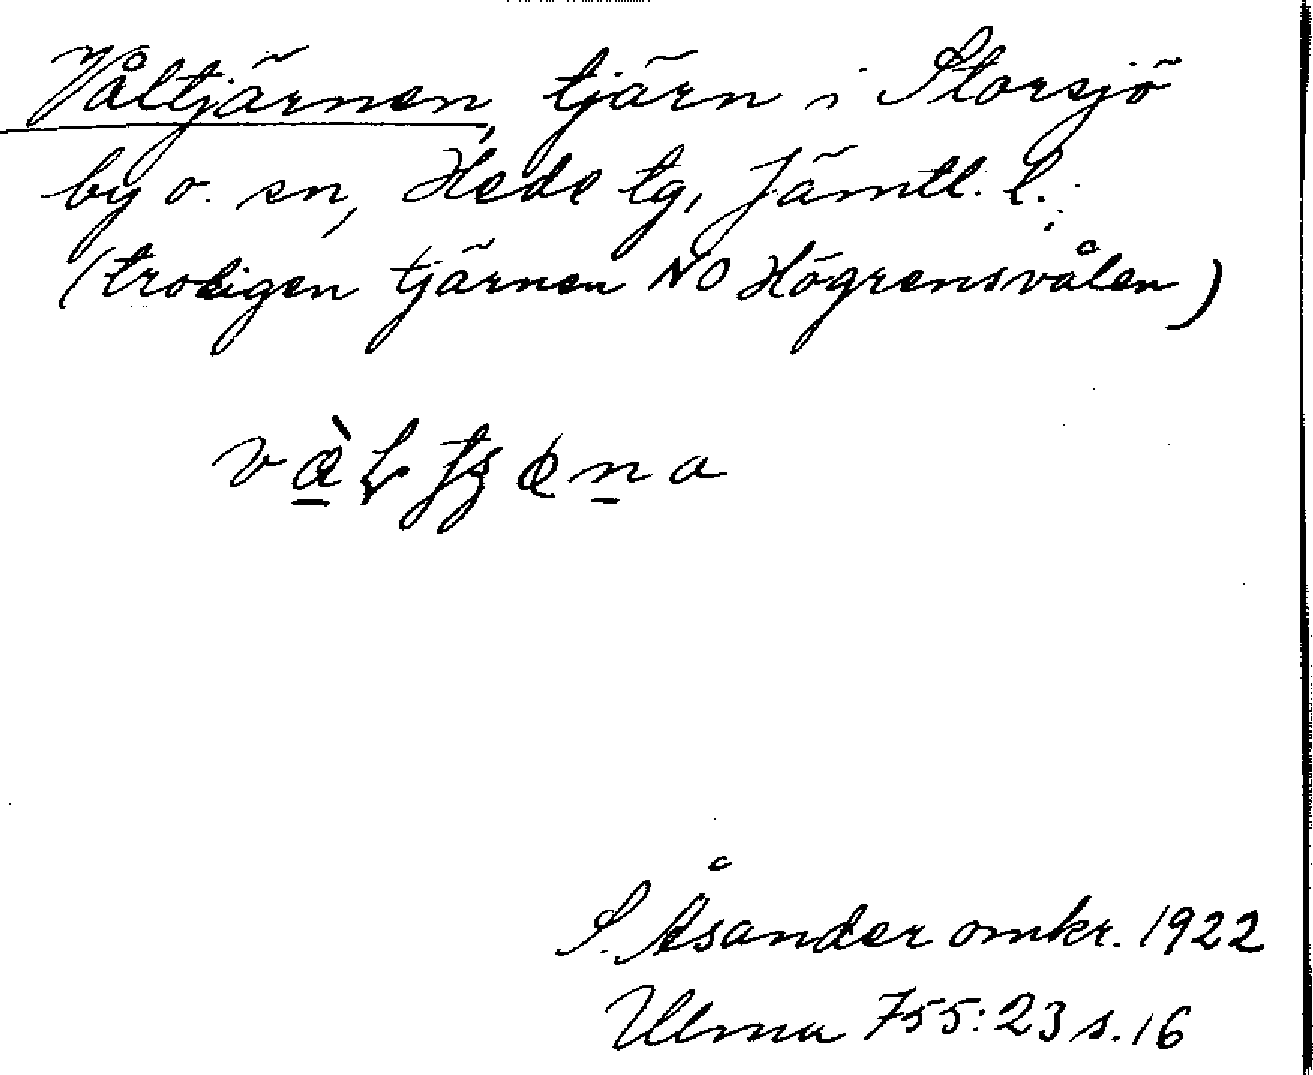 Våltjärnen, tjärn i Storsjö
by o. sn, Hede tg, Jämtl. l.
(troligen tjärnen NO Högrensvålen)
S. Åsander omkr. 1922
Ulma 755:23 s. 16